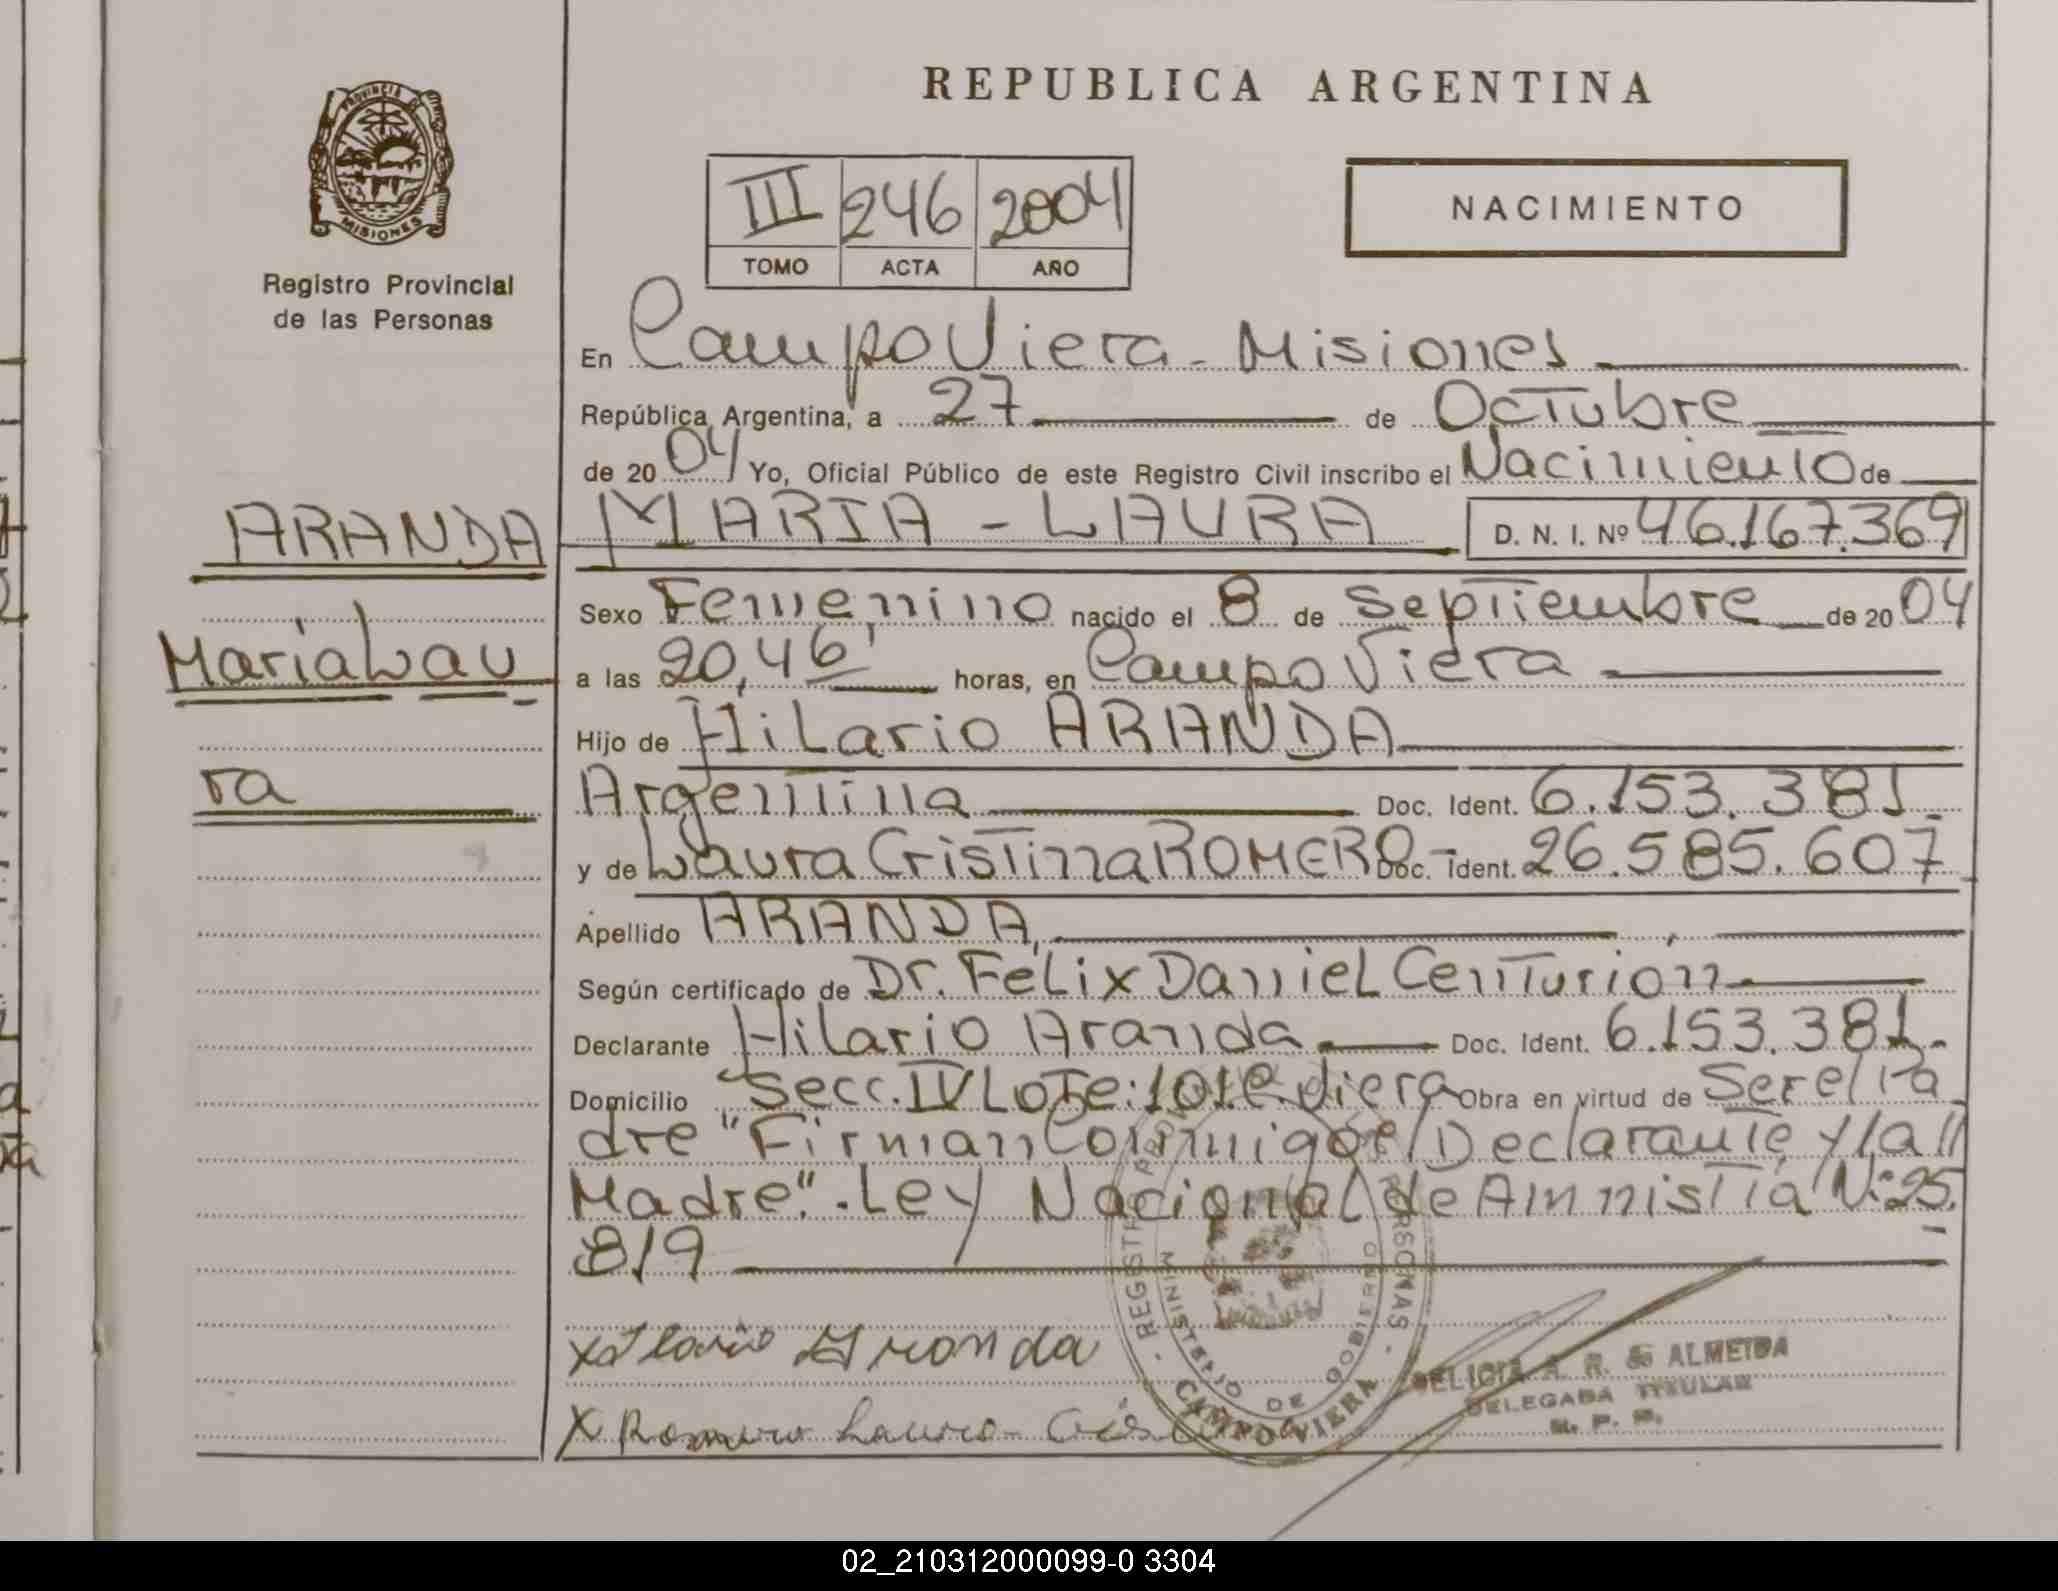 REPUBLICA ARGENTINA
PROVINCIA DE
MISIONES
Registro Provincial
de las Personas
III 246 2004
TOMO ACTA AÑO
NACIMIENTO
En Campo Viera - Misiones
República Argentina, a 27 de Octubre
de 2004 Yo, Oficial Público de este Registro Civil inscribo el Nacimiento de
ARANDA
MARIA - LAURA D. N. I. Nº 46.167.369
Sexo Femenino nacido el 8 de Septiembre de 2004
Maria Lau
ra
a las 20,46' horas, en Campo Viera
Hijo de Hilario ARANDA
Argentina Doc. Ident. 6.153.381
y de Laura Cristina ROMERO - Doc. Ident. 26.585.607
Apellido ARANDA,
Según certificado de Dr. Felix Daniel Centurion
Declarante Hilario Aranda Doc. Ident. 6.153.381.-
Domicilio Secc. IV Lote: 101 C. Viera Obra en virtud de Ser el Pa
dre "Firman Conmigo el Declarante y la
Madre". Ley Nacional de Amnistia N: 25.
819
x Ilario Aranda
x Romero Laura Cris
REGISTRO PERSONAS
MINISTERIO DE GOBIERNO
CAMPO VIERA
DELICIA A. R. de ALMEIDA
DELEGADA TITULAR
R. P. P.
02_210312000099-0 3304